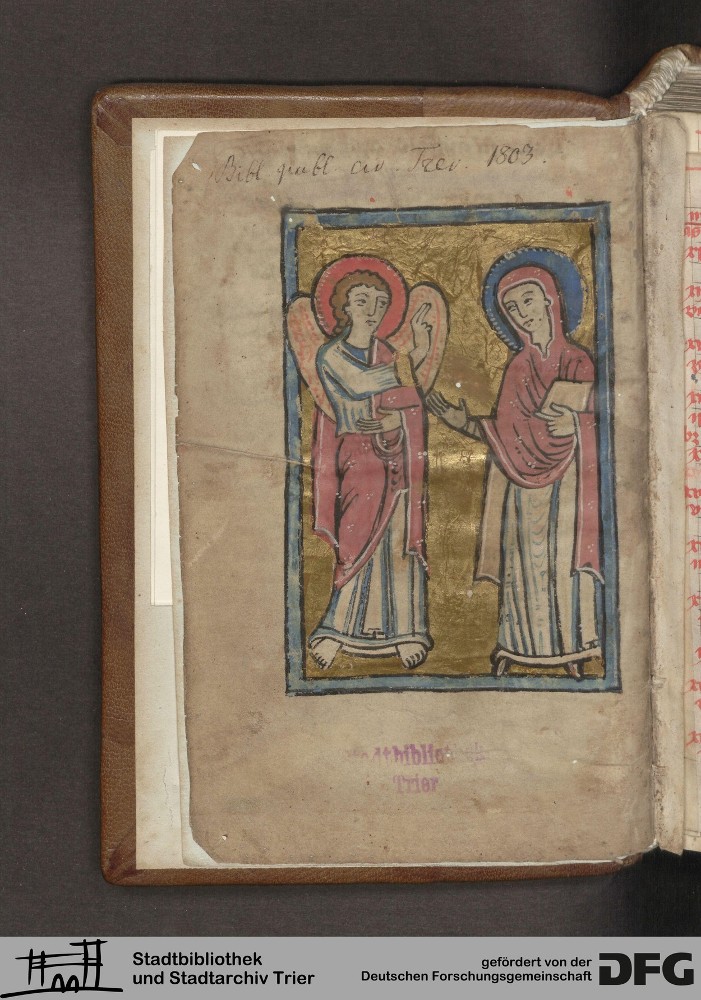 Bibl publ civ. Trev. 1803.
Stadtbibliothek
Trier
Stadtbibliothek
und Stadtarchiv Trier
gefördert von der
Deutschen Forschungsgemeinschaft
DFG